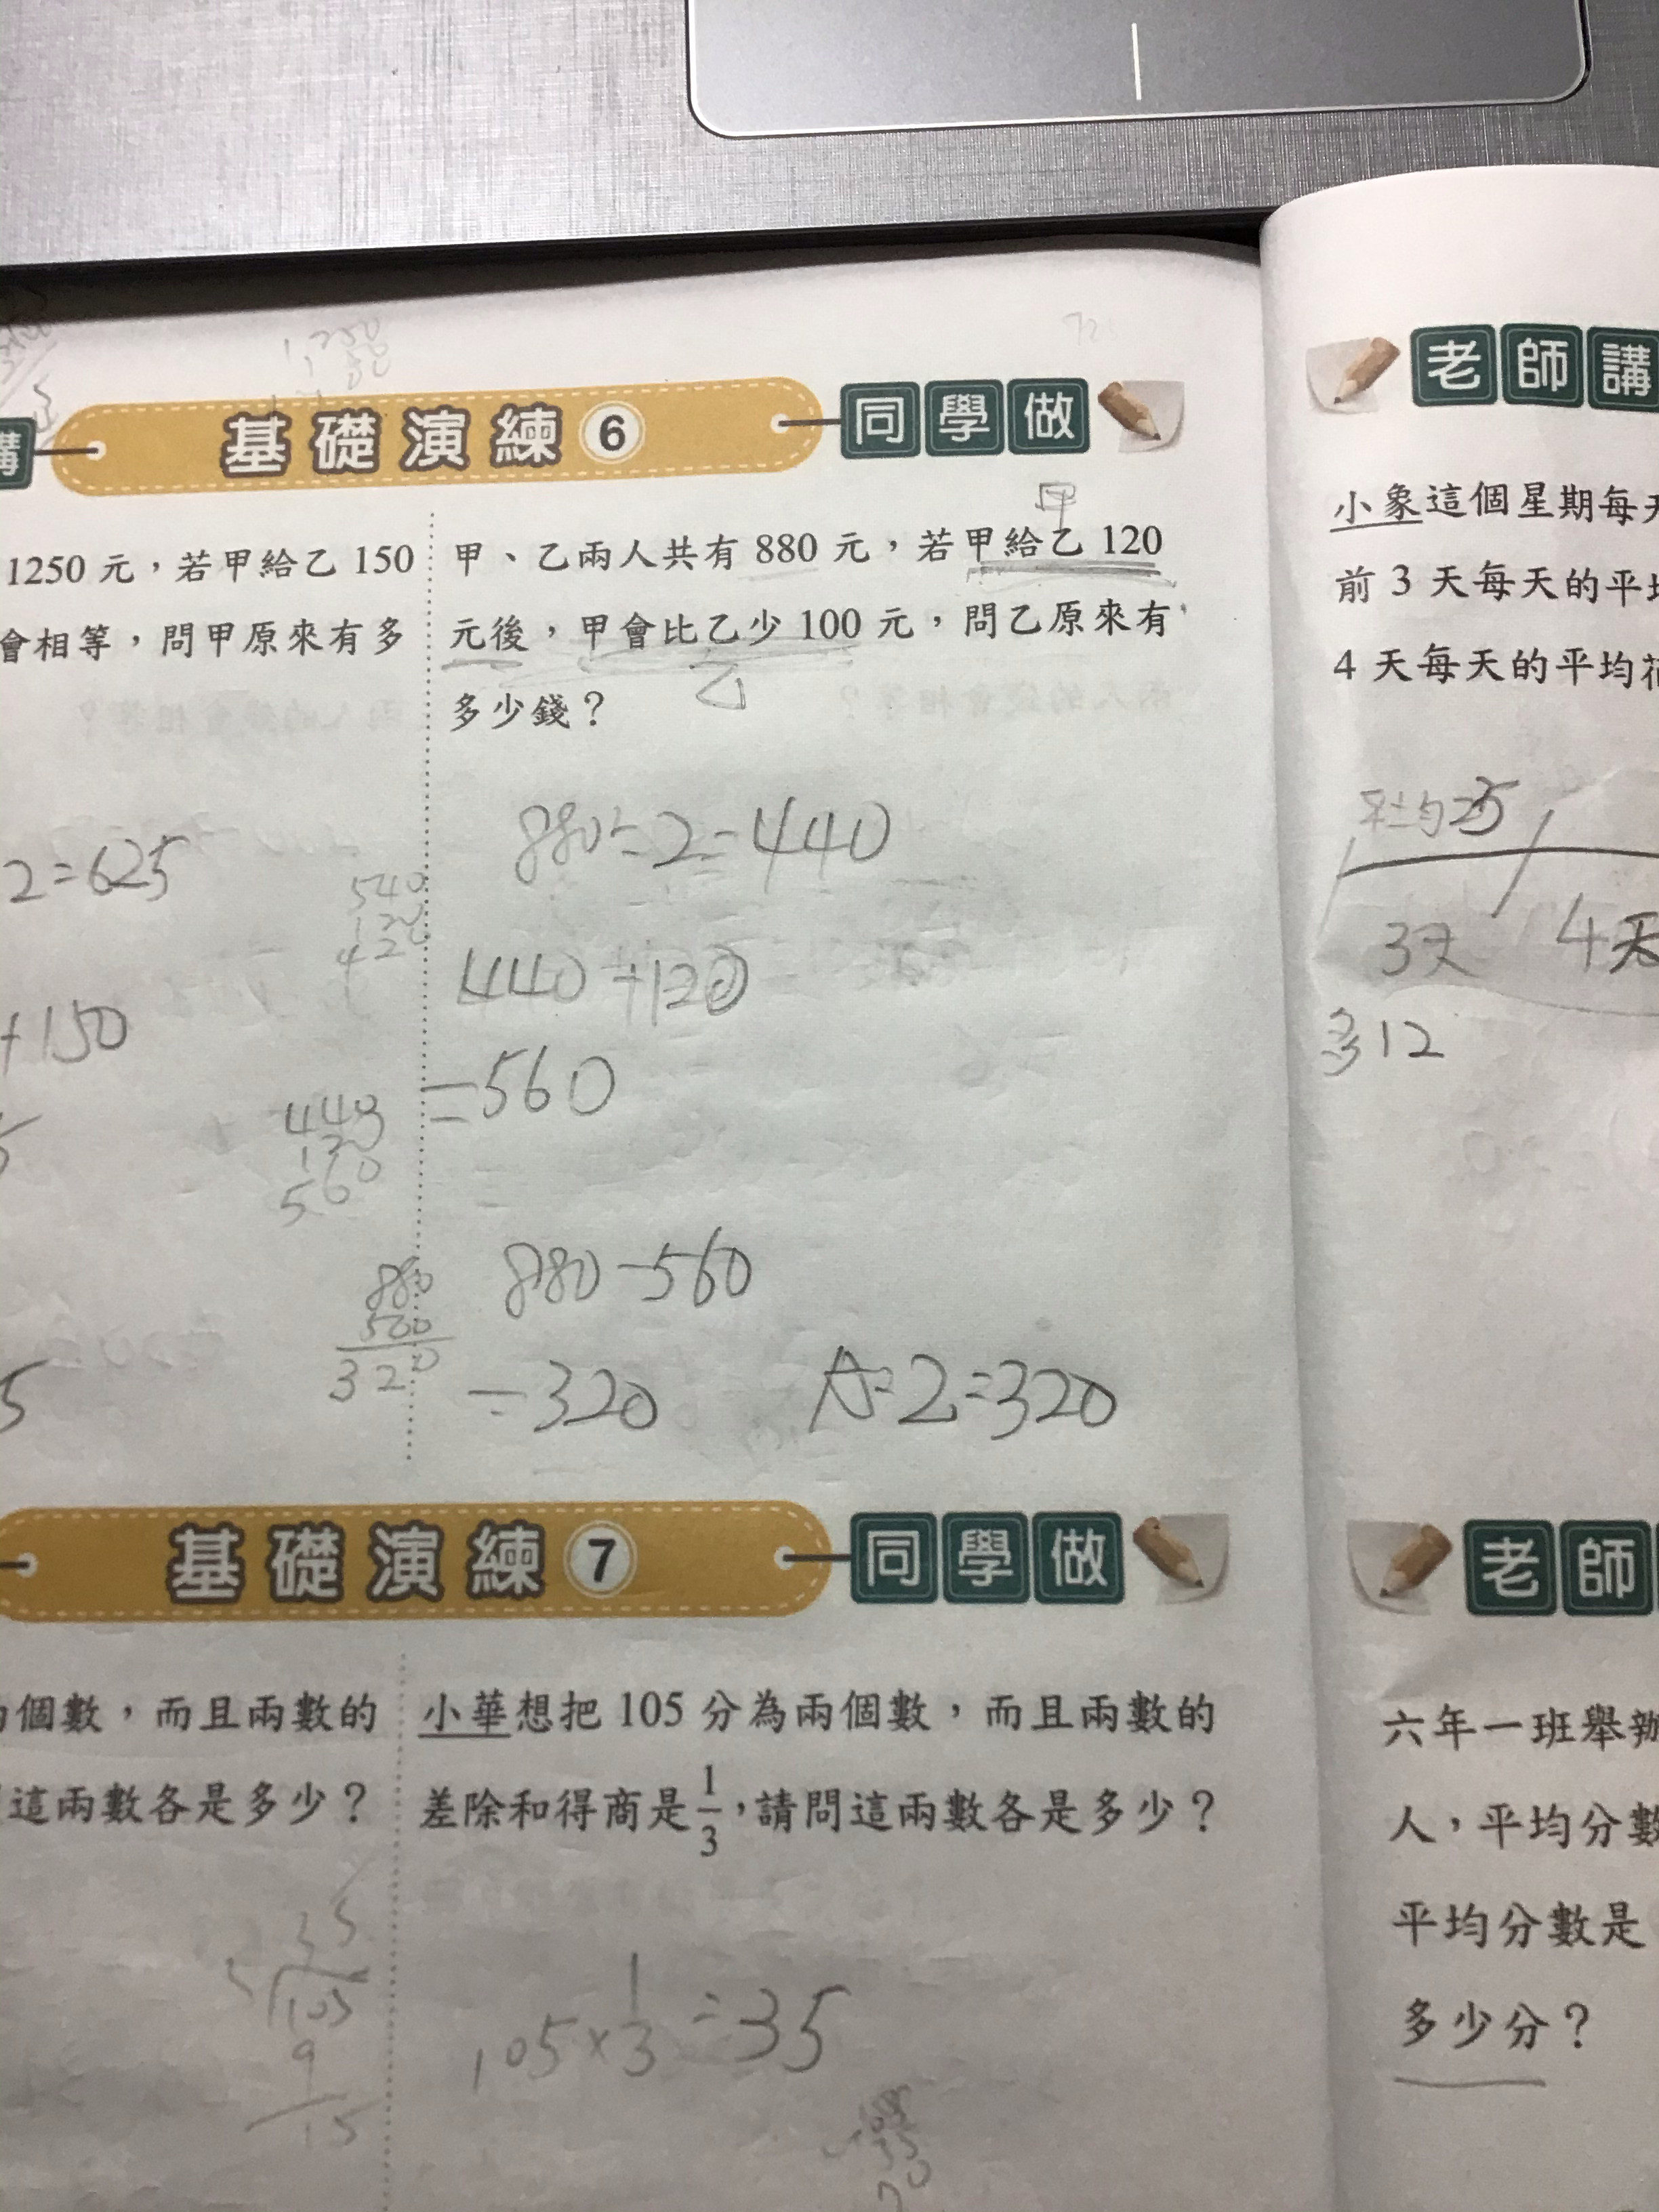 1250
72
講
基礎演練6
同學做
1250元，若甲給乙150
會相等，問甲原來有多
2=625
+150
5
甲
甲、乙兩人共有880元，若甲給乙120
元後，甲會比乙少100元，問乙原來有
乙
多少錢？
880÷2=440
540
120
420
440+120
=560
440
120
560
880-560
880
560
320
=320
A:乙=320
基礎演練7
同學做
個數，而且兩數的
這兩數各是多少？
35
105
9
15
小華想把105分為兩個數，而且兩數的
差除和得商是1/3，請問這兩數各是多少？
105×1/3=35
老師講
小象這個星期每天
前3天每天的平均
4天每天的平均花
平均25
3天 4天
多12
老師
六年一班舉辦
人，平均分數
平均分數是
多少分？